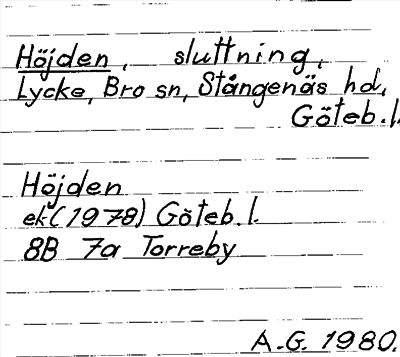 Höjden, sluttning,
Lycke, Bro sn, Stångenäs hd,
Göteb.l.
Höjden
ek(1978) Göteb.l.
8B 7a Torreby
A.G. 1980.